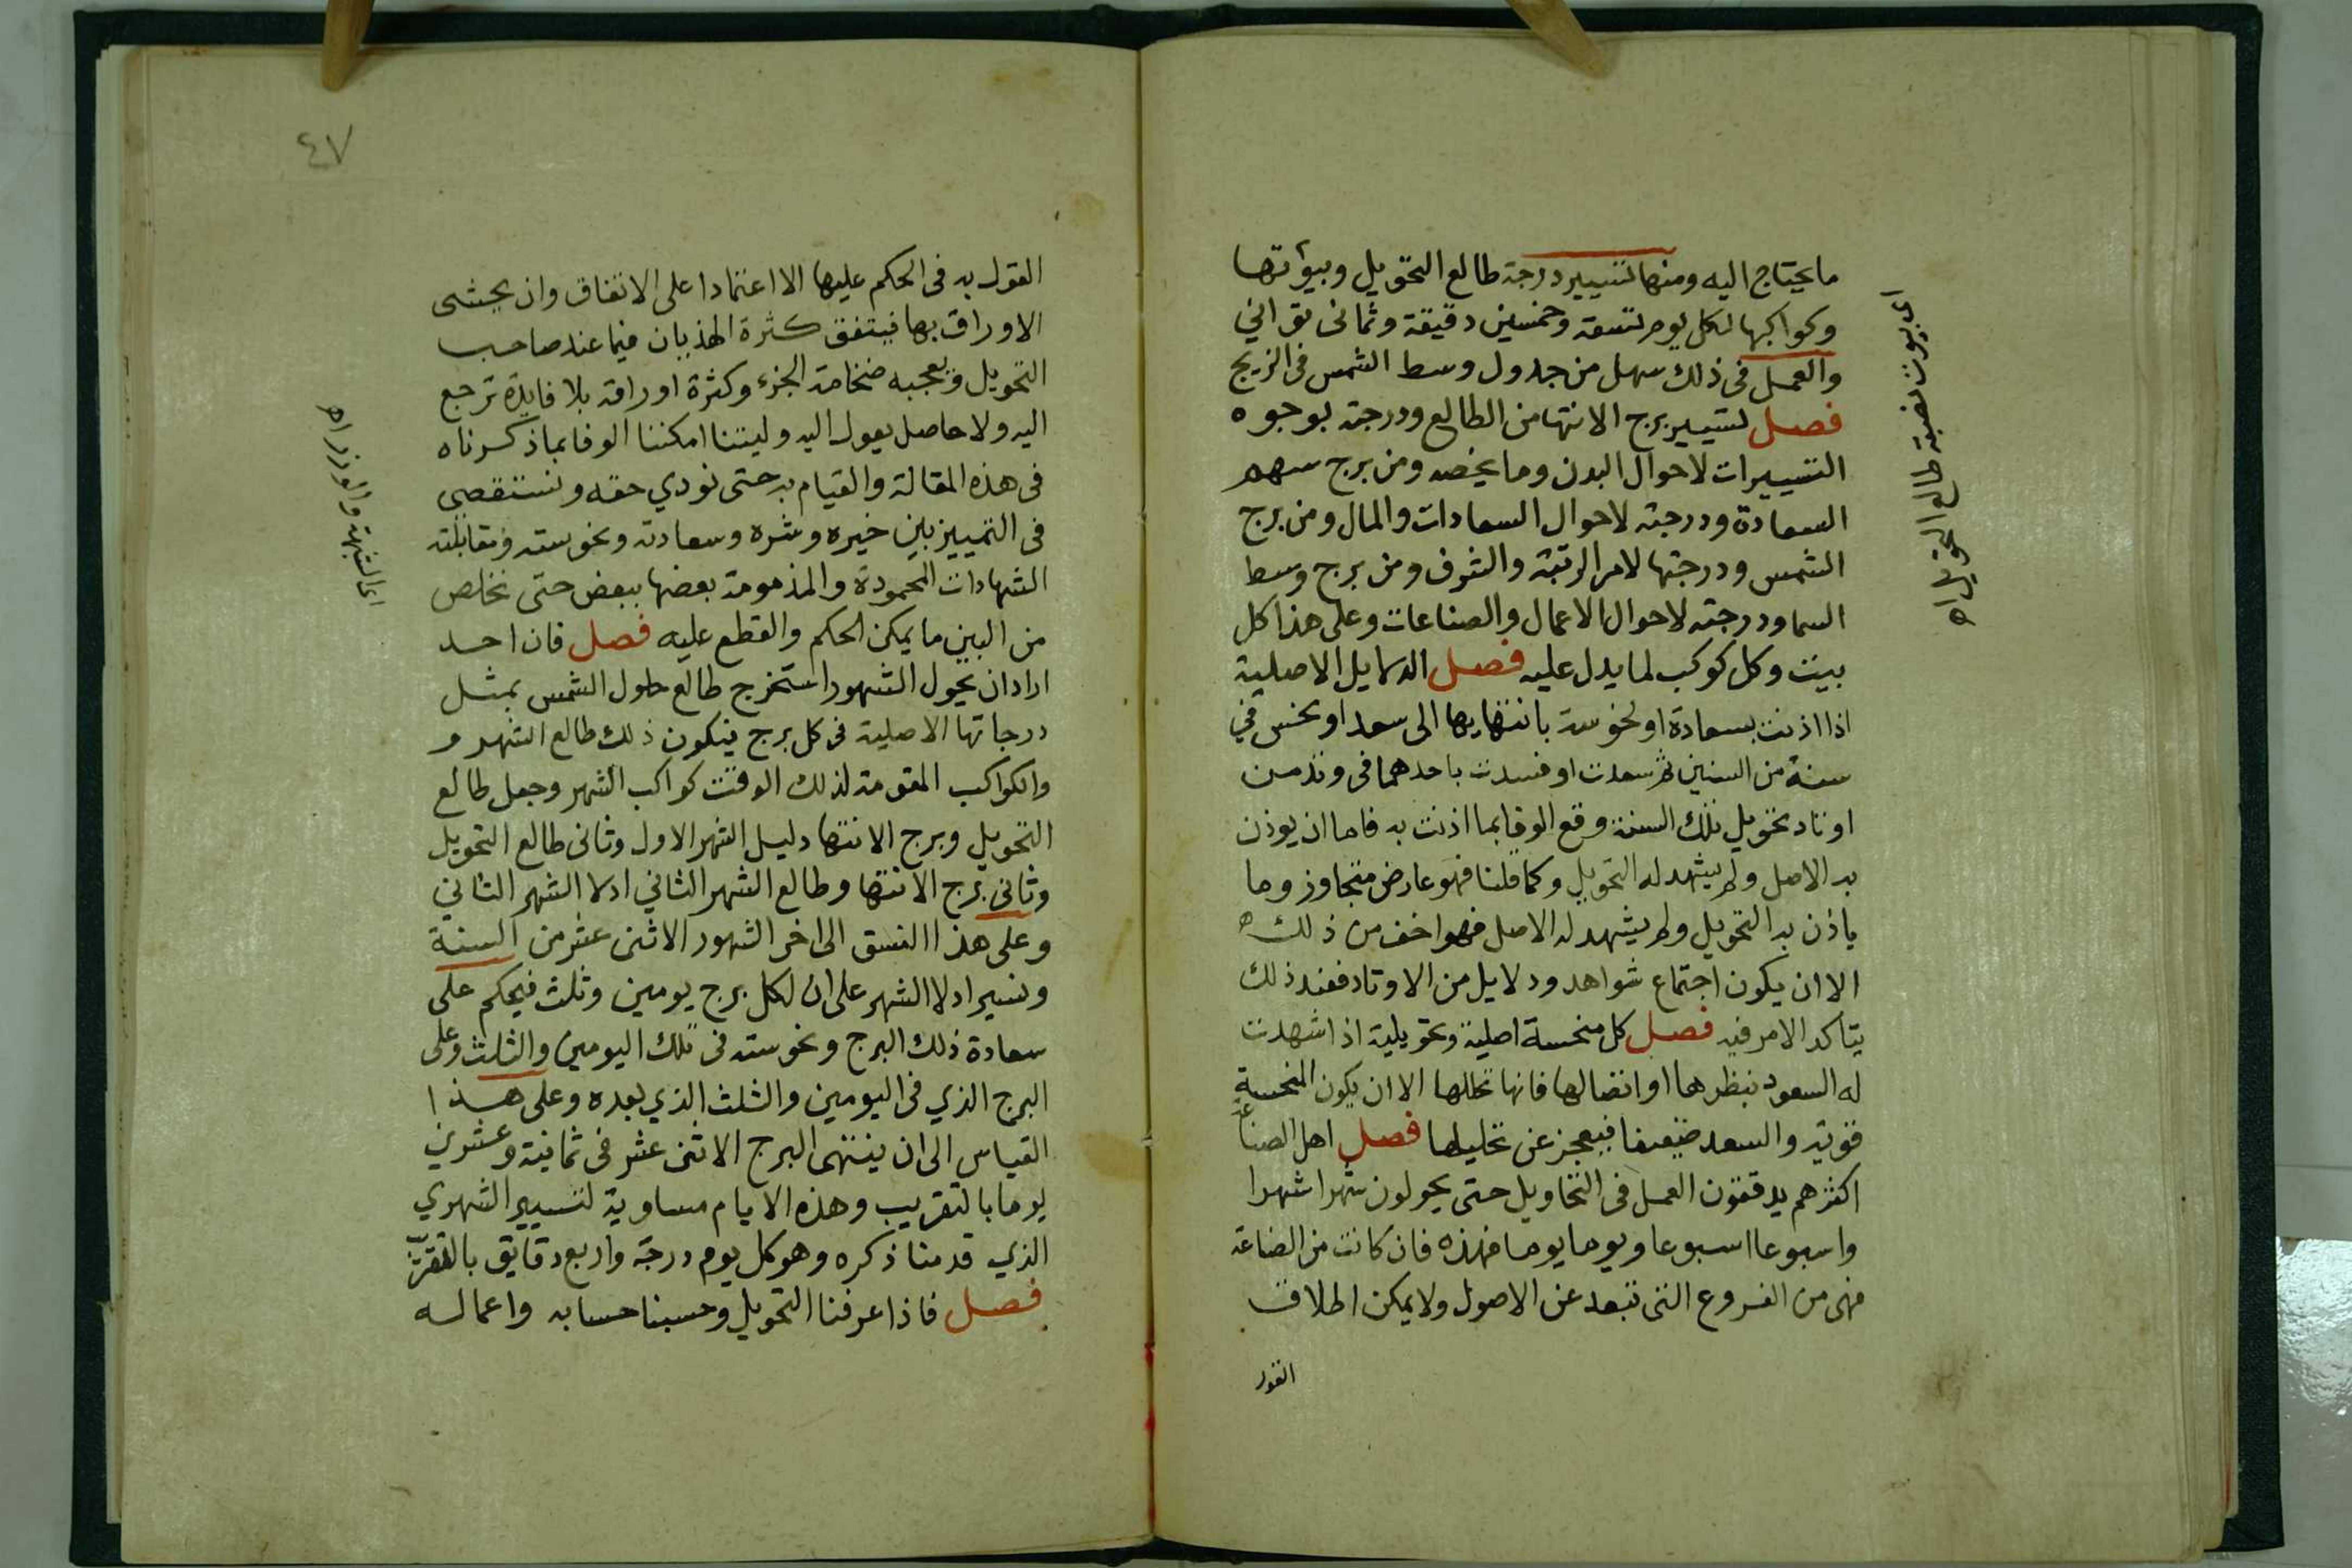 ما يحتاج اليه ومنها تسيير درجة طالع التحويل وبيوتها
وكواكبها لكل يوم تسعة وخمسين دقيقة وثمانى ثوانى
والعمل فى ذلك سهل من جدول وسط الشمس فى الزيج
فصل تسيير برج الانتها من الطالع ودرجته لوجوه
التسييرات لاحوال البدن وما يخصه ومن برج سهم
السعادة ودرجته لاحوال السعادات والمال ومن برج
الشمس ودرجتها لامر الرتبة والشرف ومن برج وسط
السما ودرجته لاحوال الاعمال والصناعات وعلى هذا كل
بيت وكل كوكب لما يدل عليه فصل الدلايل الاصلية
اذا اذنت بسعادة او نحوسة بانتهايها الى سعد او نحس في
سنة من السنين ثم سعدت او فسدت باحدهما فى وتد من
اوتاد تحويل تلك السنة وقع الوفا بما اذنت به فاما ان يوذن
به الاصل ولم يشهد له التحويل وكما قلنا فهو عارض متجاوز وما
ياذن به التحويل ولم يشهد له الاصل فهو اخف من ذلك ه
الا ان يكون اجتماع شواهد ودلايل من الاوتاد فعند ذلك
يتاكد الامر فيه فصل كل منحسة اصلية وتحويلية اذا شهدت
له السعود بنظرها او اتصالها فانها تحللها الا ان يكون المنحسة
قوية والسعد ضعيفا فيعجز عن تحليلها فصل اهل الصناعة
اكثرهم يدققون العمل فى التحاويل حتى يحولون شهرا شهرا
واسبوعا اسبوعا ويوما يوما فهذه فان كانت من الصناعة
فهى من الفروع التى تبعد عن الاصول ولا يمكن اطلاق
القول
اى بيوت نصبة طالع التحويل ه
٤٧
القول به فى الحكم عليها الا اعتمادا على الاتفاق وان يحشى
الاوراق بها فيتفق كثرة الهذيان فيما عند صاحب
التحويل فيعجبه ضخامة الجزء وكثرة اوراقه بلا فايدة ترجع
اليه ولا حاصل يعول اليه وليتنا امكننا الوفا بما ذكرناه
فى هذه المقالة والقيام به حتى نودي حقه ونستقصى
فى التمييز بين خيره وشره وسعادته ونحوسته ومقابلته
الشهادات المحمودة والمذمومة بعضها ببعض حتى نخلص
من البين ما يمكن الحكم والقطع عليه فصل فان احد
اراد ان يحول الشهور استخرج طالع حلول الشمس بمثل
درجاتها الاصلية فى كل برج فيكون ذلك طالع الشهر و
والكواكب المقومة لذلك الوقت كواكب الشهر وجعل طالع
التحويل وبرج الانتها دليل الشهر الاول وثانى طالع التحويل
وثانى برج الانتها وطالع الشهر الثاني ادلا الشهر الثاني
وعلى هذا النسق الى اخر الشهور الاثنى عشر من السنة
ونسير ادلا الشهر على ان لكل برج يومين وثلث فيحكم على
سعادة ذلك البرج ونحوسته فى تلك اليومين والثلث وعلى
البرج الذي فى اليومين والثلث الذي بعده وعلى هذا
القياس الى ان ينتهى البرج الاثنى عشر فى ثمانية وعشرين
يوما بالتقريب وهذه الايام مساوية لتسيير الشهري
الذي قدمنا ذكره وهو كل يوم درجة واربع دقايق بالتقريب
فصل فاذا عرفنا التحويل وحسبنا حسابه واعماله